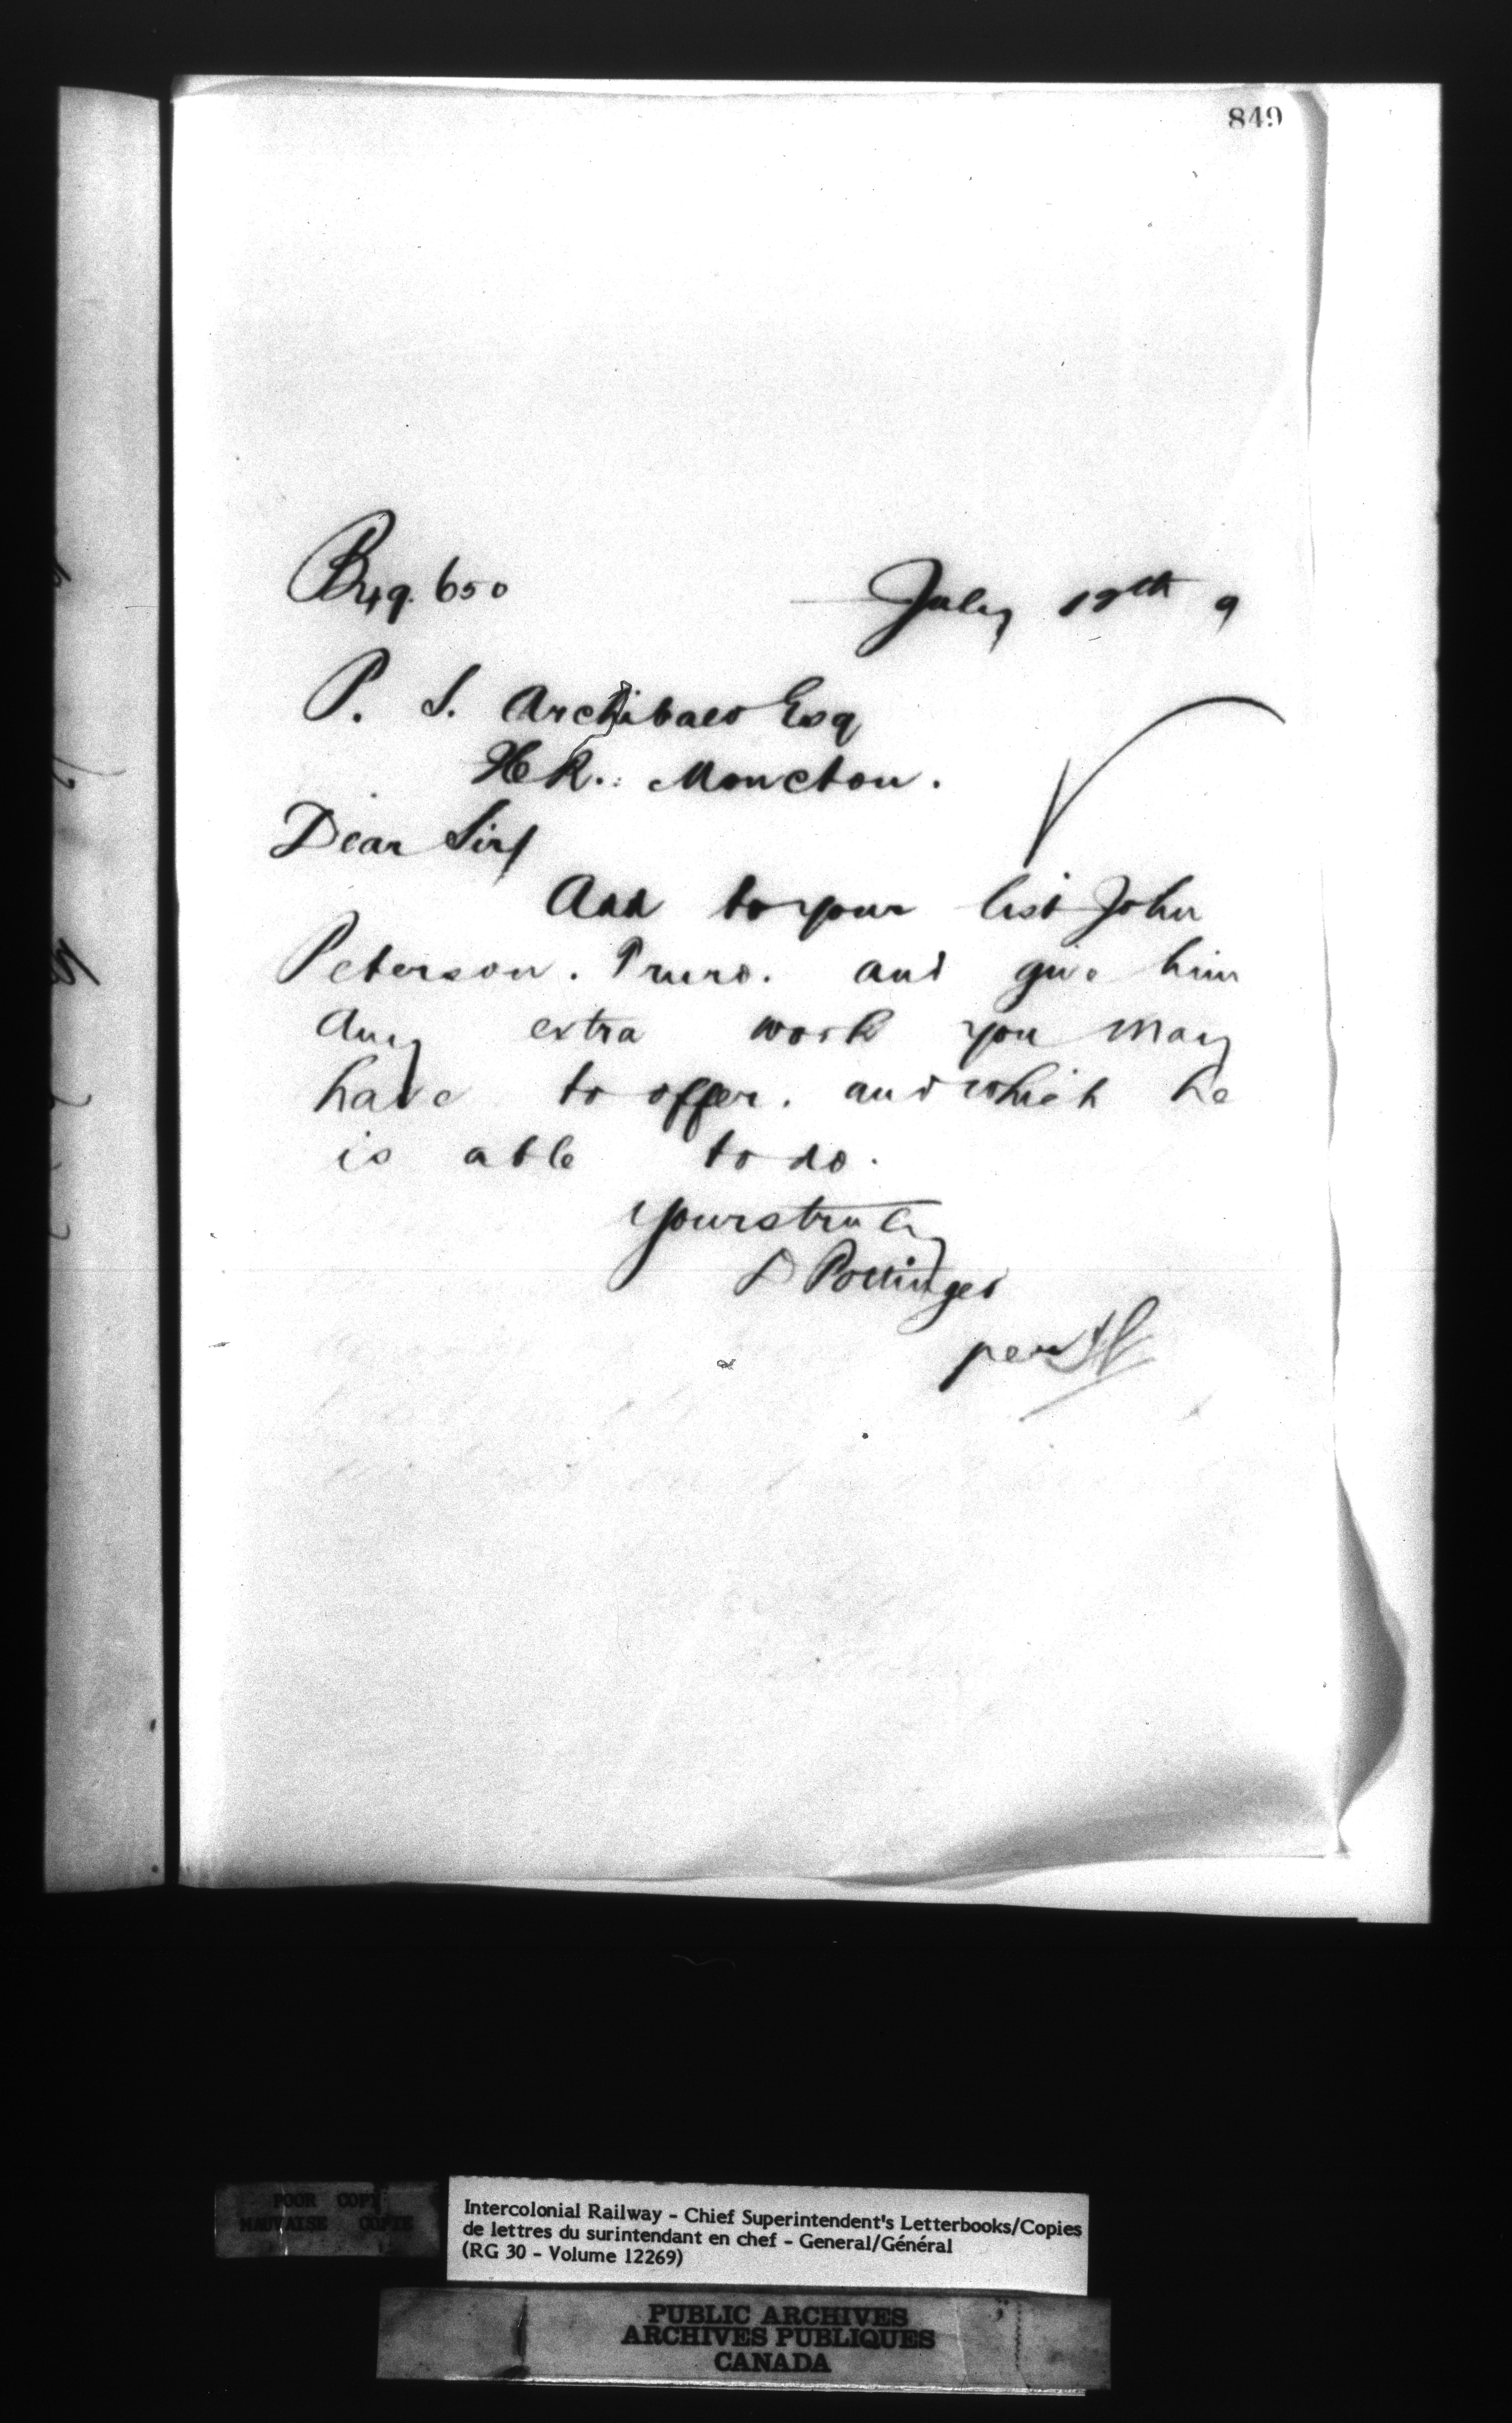 849
July 18th 9
P. S. Archibald Esq
Moncton.
Dear Sir/
Add to your list John
Peterson. Truro. and give him
any extra work you may
have to offer. and which he
is able to do.
Yours truly
D Pottinger
per
POOR COPY
MAUVAISE COPIE
Intercolonial Railway - Chief Superintendent's Letterbooks/Copies
de lettres du surintendant en chef - General/Général
(RG 30 - Volume 12269)
PUBLIC ARCHIVES
ARCHIVES PUBLIQUES
CANADA